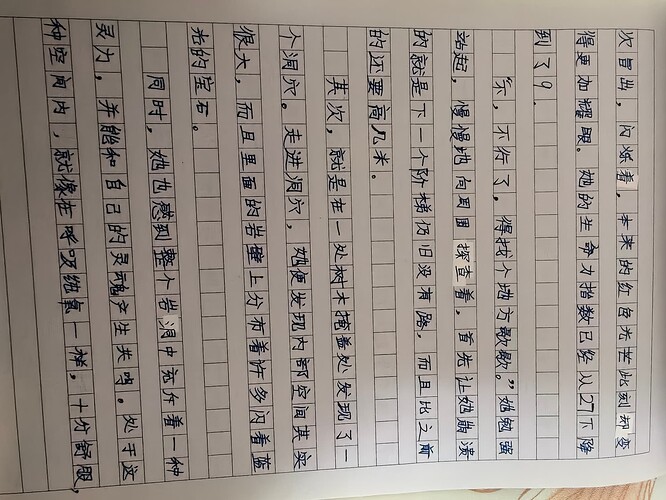 次冒出，闪烁着，本来的红色光芒此刻却变
得更加耀眼。她的生命力指数已经从27下降
到了9.
“不，不行了，得找个地方歇歇。”她勉强
站起，慢慢地向周围探查着，首先让她崩溃
的就是下一个阶梯仍旧没有路，而且比之前
的还要高几米。
其次，就是在一处树木掩盖处发现了一
个洞穴。走进洞穴，她便发现内部空间其实
很大，而且里面的岩壁上分布着许多闪着蓝
光的宝石。
同时，她也感到整个岩洞中充斥着一种
灵力。并能和自己的灵魂产生共鸣。处于这
种空间内，就像在呼吸纯氧一样，十分舒服，